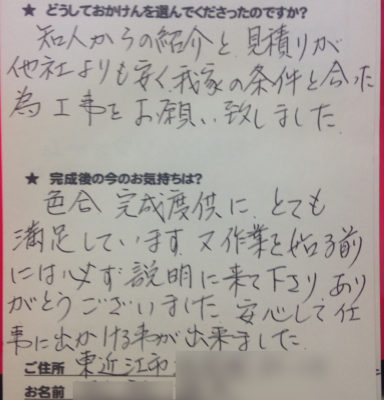 ★ どうしておかけんを選んでくださったのですか?
知人からの紹介と見積りが
他社よりも安く我家の条件と合った
為工事をお願い致しました
★ 完成後の今のお気持ちは?
色合 完成度供に とても
満足しています 又作業を始る前
には必ず説明に来て下さり あり
がとうございました 安心して仕
事に出かける事が出来ました
ご住所 東近江市
お名前